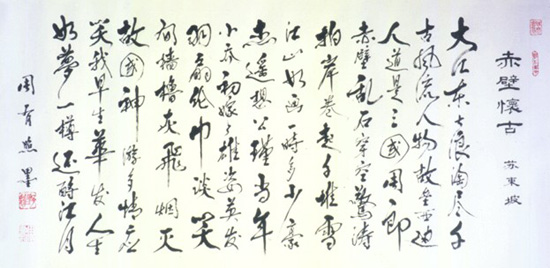 赤壁懷古
苏東坡
大江东去浪淘尽千
古風流人物故垒西边
人道是三國周郎
赤壁乱石穿空驚涛
拍岸卷起千堆雪
江山如画一時多少豪
杰遥想公瑾当年
小乔初嫁了雄姿英发
羽扇纶巾谈笑
间樯橹灰飛烟灭
故國神游多情应
笑我早生華发人生
如夢一樽还酹江月
周 墨